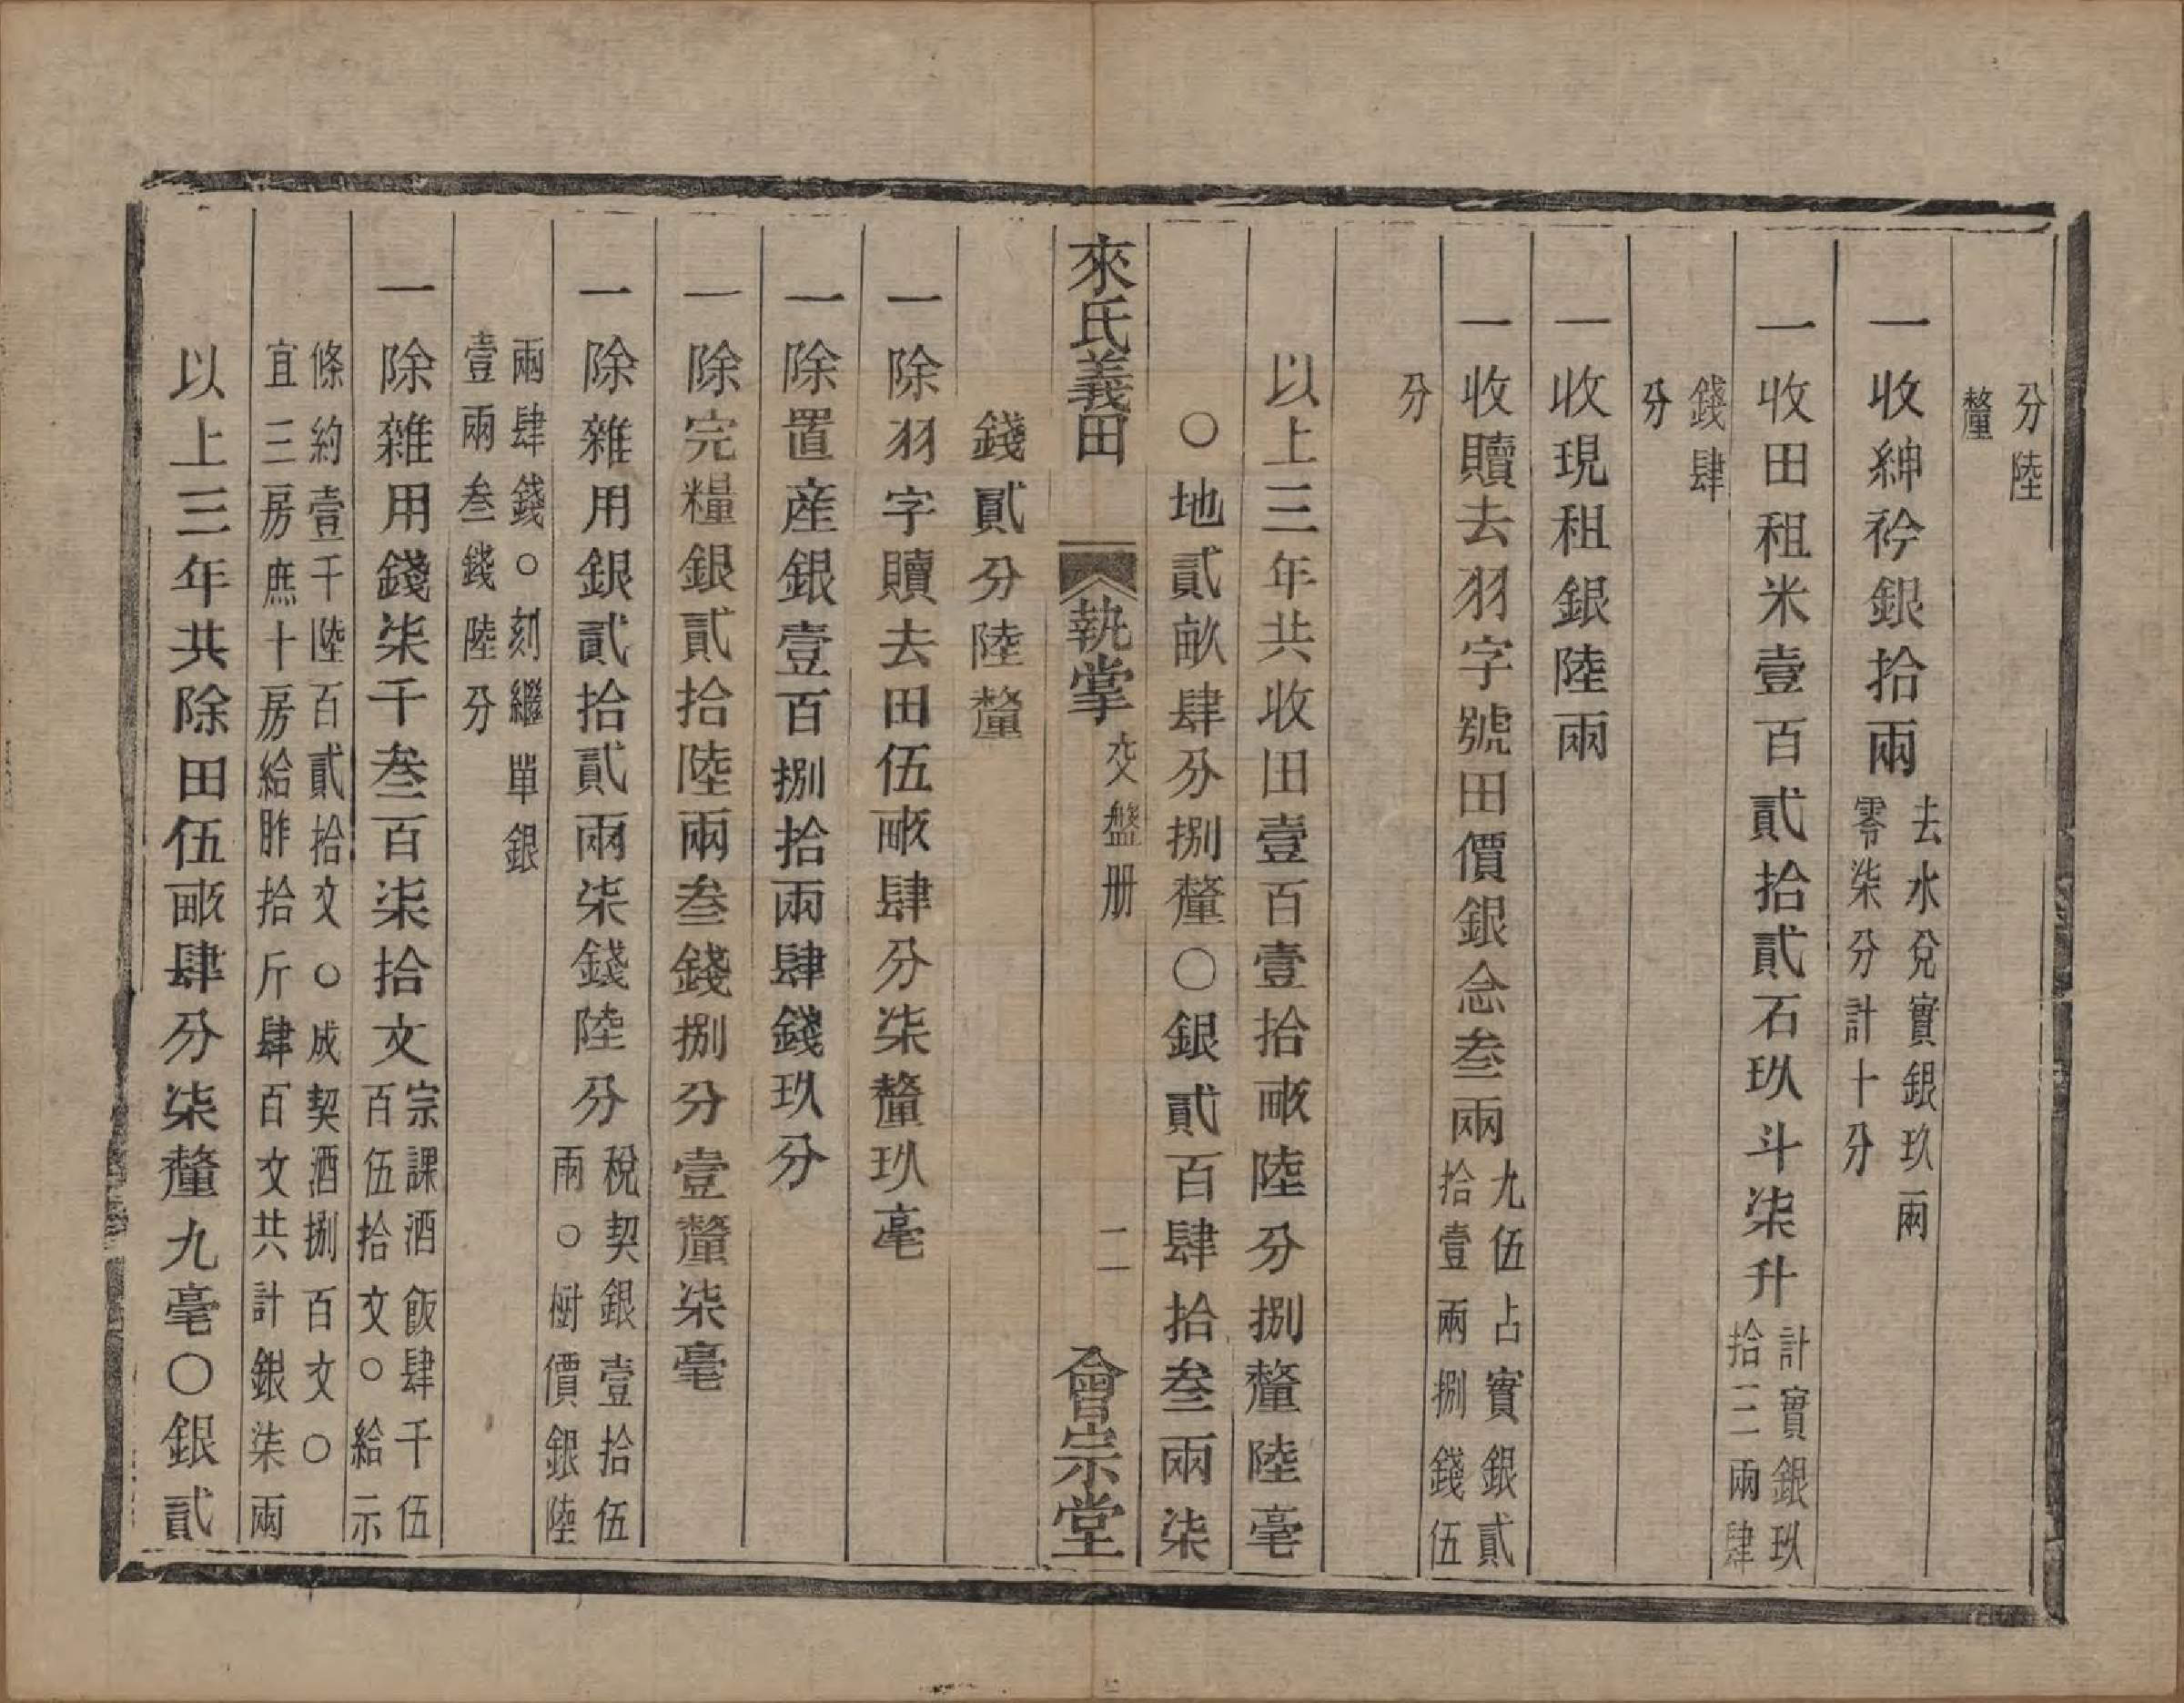 分陸
釐
一收紳衿銀拾兩去水兌實銀玖兩
零柒分計十分
一收田租米壹百貳拾貳石玖斗柒升計實銀玖
拾二兩肆
錢肆
分
一收現租銀陸兩
一收贖去羽字號田價銀念叁兩九伍占實銀貳
拾壹兩捌錢伍
分
以上三年共收田壹百壹拾畝陸分捌釐陸毫
○地貳畝肆分捌釐○銀貳百肆拾叁兩柒
來氏義田 執掌 交盤册 二 會宗堂
錢貳分陸釐
一除羽字贖去田伍畝肆分柒釐玖毫
一除置產銀壹百捌拾兩肆錢玖分
一除完糧銀貳拾陸兩叁錢捌分壹釐柒毫
一除雜用銀貳拾貳兩柒錢陸分稅契銀壹拾伍
兩○樹價銀陸
兩肆錢○刻繼單銀
壹兩叁錢陸分
一除雜用錢柒千叁百柒拾文宗課酒飯肆千伍
百伍拾文○給示
條約壹千陸百貳拾文○成契酒捌百文○
宜三房庶十房給胙拾斤肆百文共計銀柒兩
以上三年共除田伍畝肆分柒釐九毫○銀貳